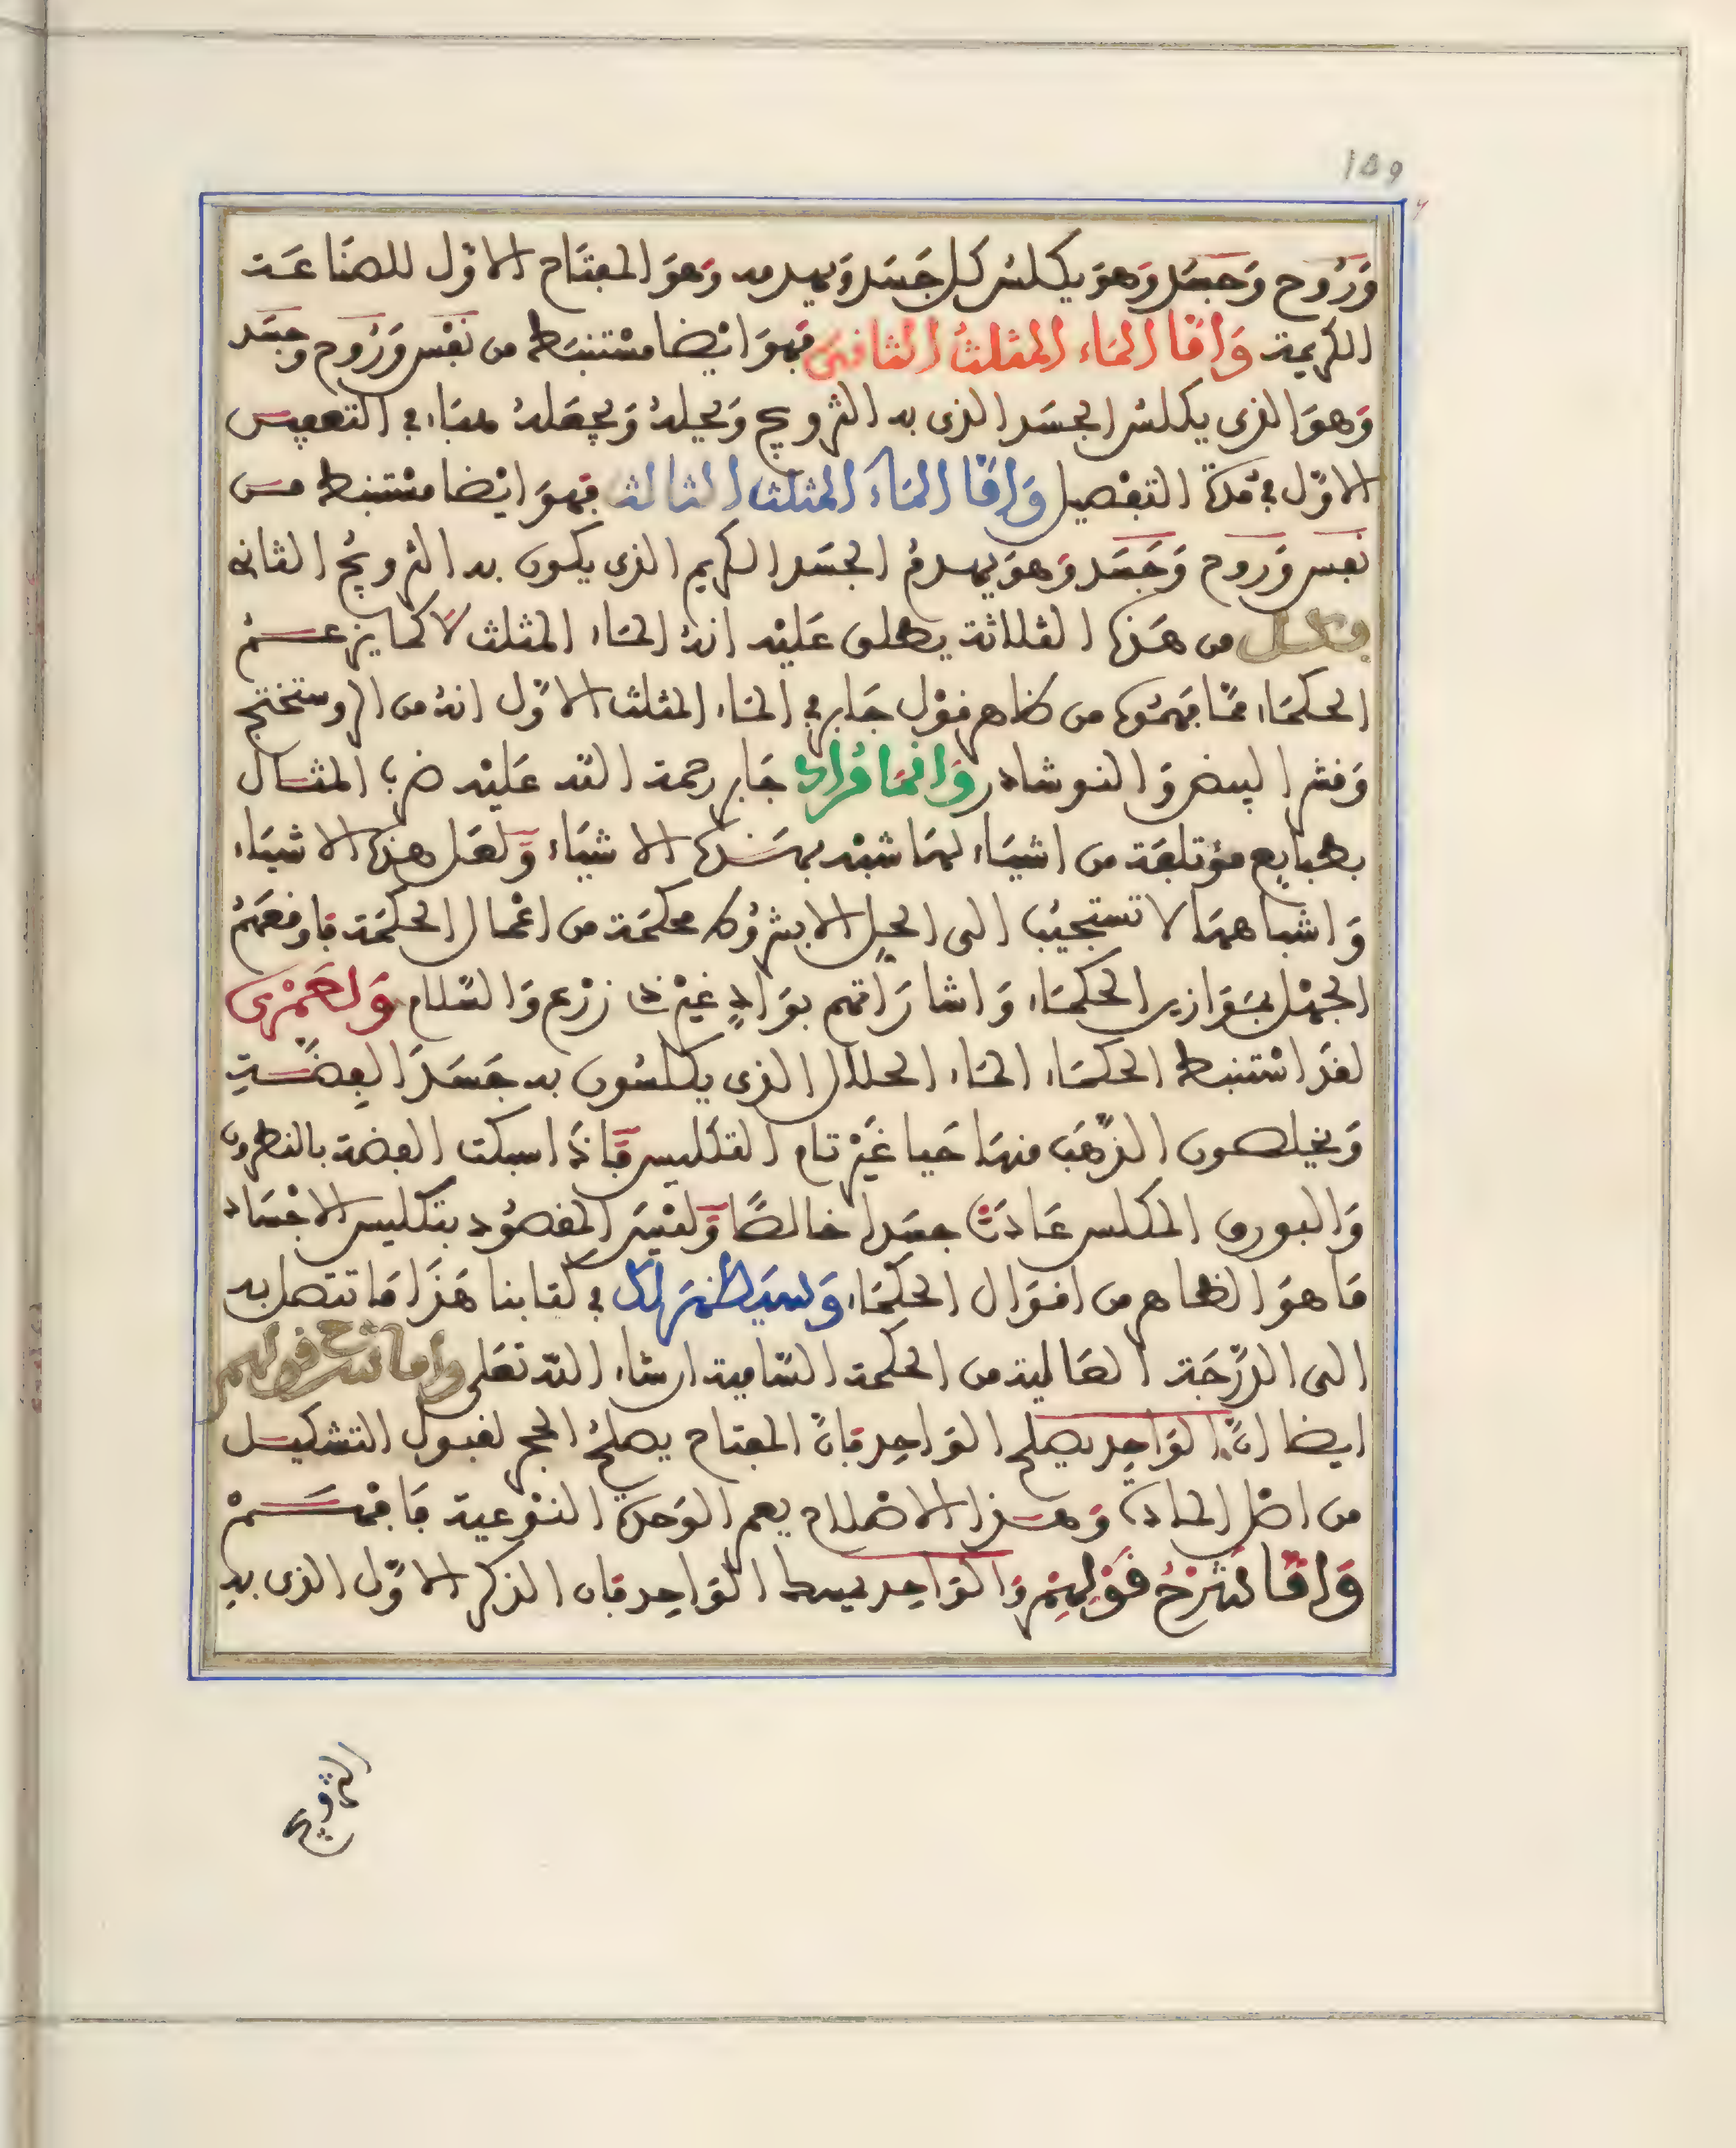 159
وَرُوح وَجَسَد وَهوَ يكلس كل جَسَد وَيهدمه وَهوَ المفتَاح الاوّل للصنَاعَة
الكريمة وَامّا المَاء المثلثُ الثانى فهوَ ايْضا مسْتنبَط من نفْس وَرُوح وجسَد
وَهوَ الذى يكلسُ الجسَد الذى به التزويج وَيحيلهُ وَيجعَلهُ هبَاء في التعفيس
الاوّل في مدة التفْصيل وَامّا المَاءُ المثلث الثالث فهوَ ايْضا مسْتنبط مـن
نفس وَرَوح وَجَسَد وَهوَ يهدمُ الجسَد الكريم الذى يكون به التزويجُ الثانى
فكل من هَذه الثلاثة يطلق عَليْه انهُ المَاء المثلث لا كما يزعـمُ
الحكمَاء ممّا فهمُوه من ظاهر قوْل جَابر في المَاء المثلث الاوّل انهُ من الروسختج
وَقشر البيض وَالنوشادر وَانمَا مُرَاد جَابر رحمة الله عَليْه ضرب المثـال
بطبايع مؤتلفَة من اشيَاء لهَا شبْه بهَـذه الاشيَاء وَلعَل هذه الاشيَاء
وَاشباههَا لا تستجيبُ الى الحيل الا بشرُوط محكمَة من اعْمال الحكمَة فاوقعَهُمُ
الجهْل بمَوَازين الحكمَاء وَاشارَاتهم بوَادٍ غيْر ذى زرْع وَالسّلام وَلعَمْرى
لقدَ اسْتنبط الحكمَاء المَاء الحلال الذى يكلسُون به جَسَدَ الفِضّـةِ
وَيخلصون الذّهَب منهَا حَيا غَيْر تام التكليس فَاذَا اسبكت الفضة بالنطرون
وَالبورق المكلس عَادَتْ جسَدا خالصًا وَليْسَ المقصُود بتكليس الاجْسَاد
مَا هوَ الظاهر من اقوَال الحكمَاء وَسَيَظهَر لك في كتابنا هَذَا مَا تتصل به
الى الدّرَجَة العَالية من الحكمة السّامية ان شاء الله تعَلى وَاما شرح قولهم
ايضا انّ الوَاحِد يصلح الوَاحِد فانّ المفتاح يصلحُ الحجر لقبول التشكيـل
من اصْل المادة وَهـذا الاصْلاح يعم الوَحدَة النوْعية فَافهَـمْ
وَامّا شَرْحُ قوْلِهِمْ وَالوَاحِد يبسط الوَاحِد فان الذكر الاوّل الذى بهِ
التزويج